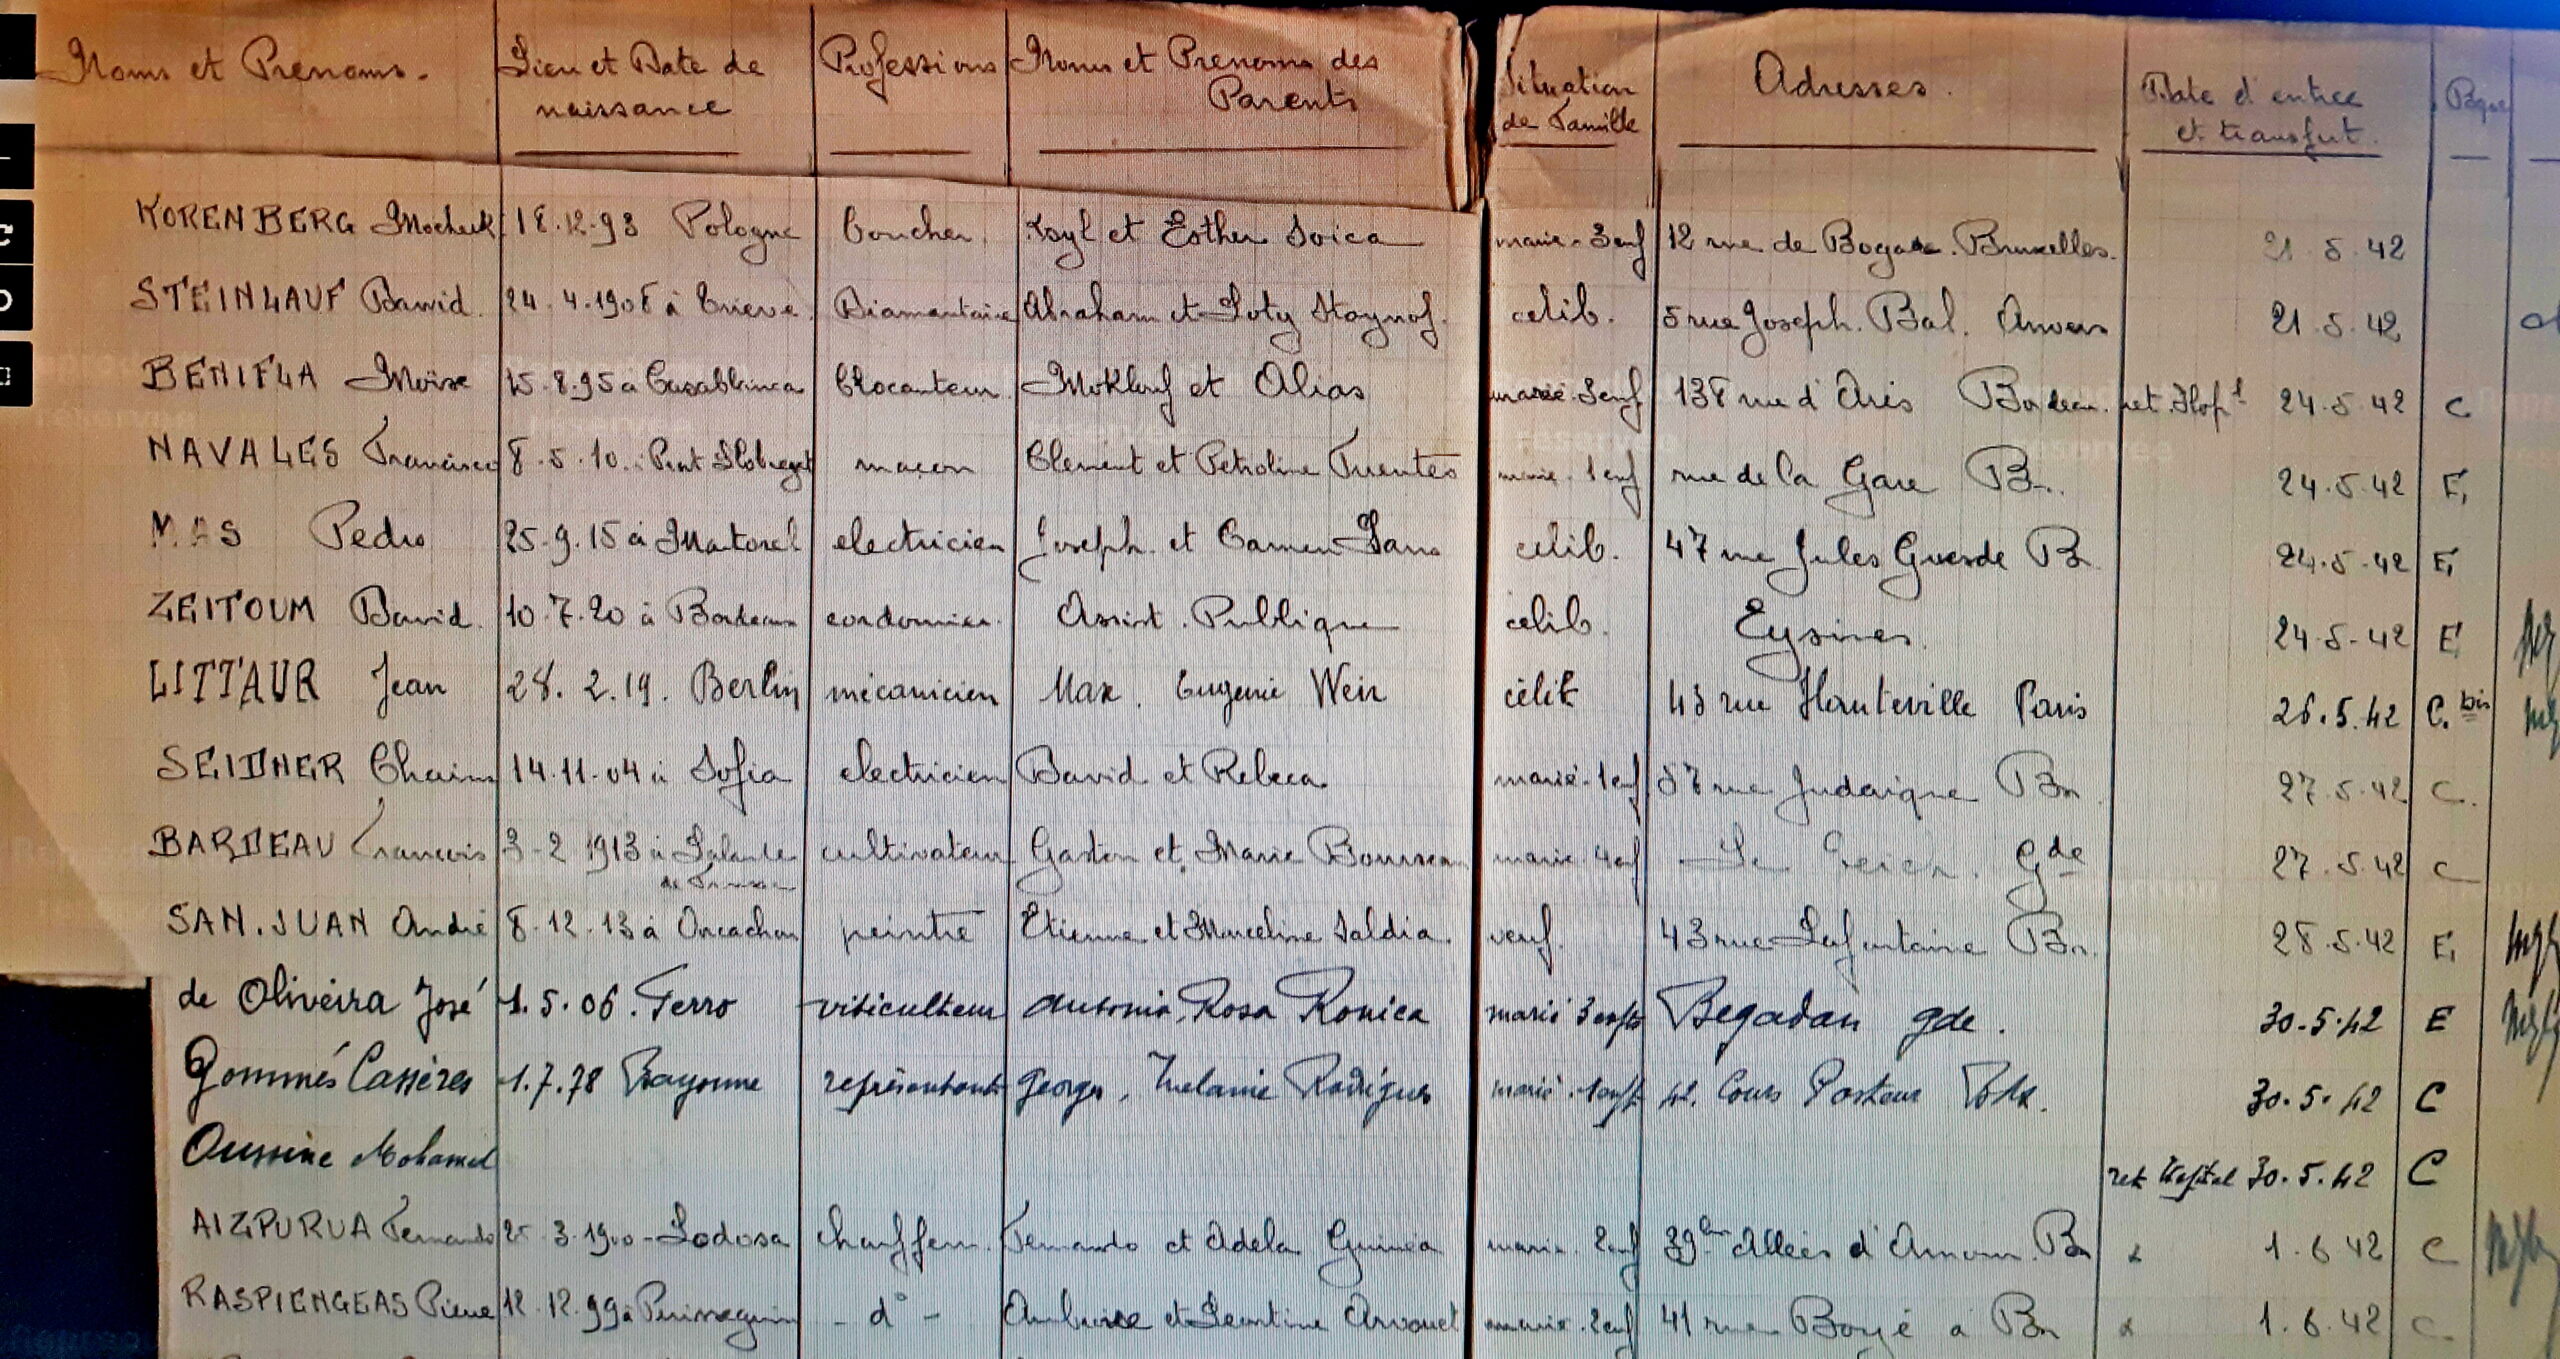 Noms et Prenoms. Lieu et Date de naissance Professions Noms et Prenoms des Parents Situation de Famille Adresses. Date d'entrée et transfert.
KORENBERG 18.12.93 Pologne boucher. et Esther Soica marié. 3 enf 12 rue de Bruxelles. 21.5.42
STEINLAUF Dawid. 24.4.1908 à Diamantaire Abraham et celib. 5 rue Joseph. Bal. Anvers 21.5.42
BENIFLA Moïse 15.8.95 à Casablanca brocanteur. et Alias marié. 138 rue d'Arès Bordeaux. ret. Hop¹ 24.5.42 C
NAVALES Francisco 8.5.10. maçon Clement et Petroline Fuentes marié. 1 enf rue de la Gare Bx. 24.5.42 E
MAS Pedro 25.9.15 à Martorel electricien Joseph et Carmen Sans célib. 47 rue Jules Guesde Bx 24.5.42 E
ZEITOUM David. 10.7.20 à Bordeaux cordonnier. Assist. Publique célib. Eysines. 24.5.42 E
LITTAUR Jean 28.2.19. Berlin mécanicien Max. Eugenie Weir célib 43 rue Hauteville Paris 26.5.42 C. bis
SEIDNER Chaim 14.11.04 à Sofia electricien David et Rebeca marié. 1 enf rue Judaïque Bx 27.5.42 C.
BARDEAU Francois 3-2 1913 à Lalande de cultivateur Gaston et Marie marié. 4 enf Le Gde 27.5.42 C
SAN.JUAN André 8.12.13 à Arcachon peintre Etienne et Marceline Saldia. veuf. 43 rue Lafontaine Bx. 28.5.42 E
de Oliveira José 1.5.06. Ferro viticulteur Rosa Ronica marié 3 enfts Begadan gde. 30.5.42 E
Gommés Cassères 1.7.78 Bayonne représentant Georges, Melanie Rodrigues marié. 1 enft 42. Cours Pasteur Bdx. 30.5.42 C
Oussine Mohamed ret Hopital 30.5.42 C
AIZPURUA Fernando 3.1900 - Lodosa chauffeur. Fernando et Adela Guinea marié. 2 enf 39 Allées d'Amour. Bx 1.6.42 C
RASPIENGEAS Pierre 12.12.99 à Puisseguin - d° - Ambroise et Leontine Arvouet marié. 2 enf 41 rue à Bx 1.6.42 C.